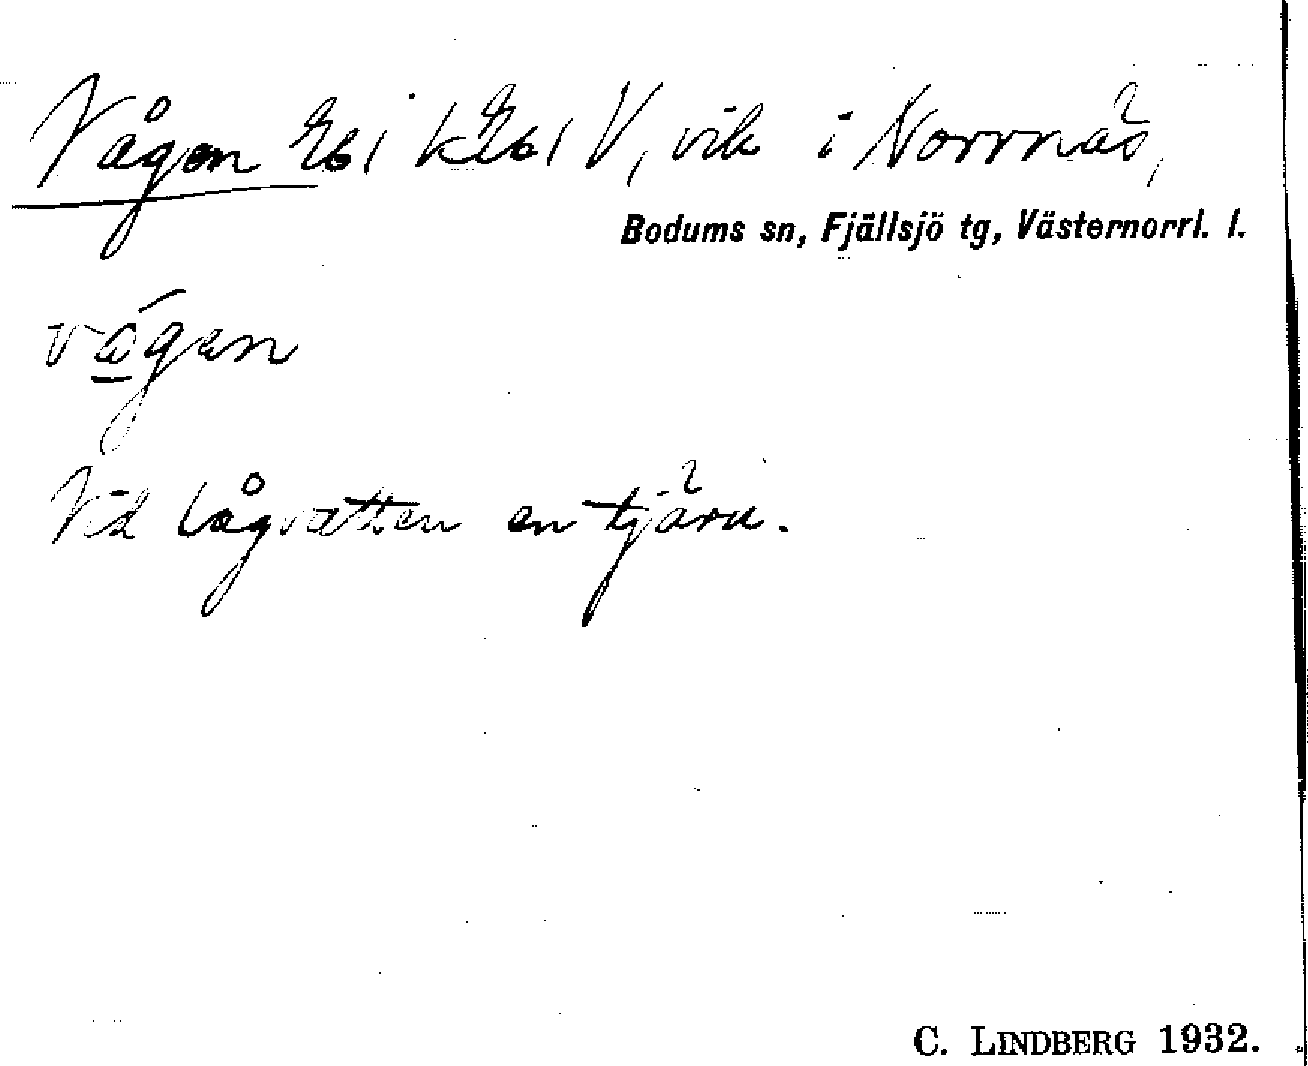 Vågen Eb1 kEb1 V, vik i Norrnäs,
Bodums sn, Fjällsjö tg, Västernorrl. l.
vágen
Vid lågvatten en tjärn.
C. LINDBERG 1932.